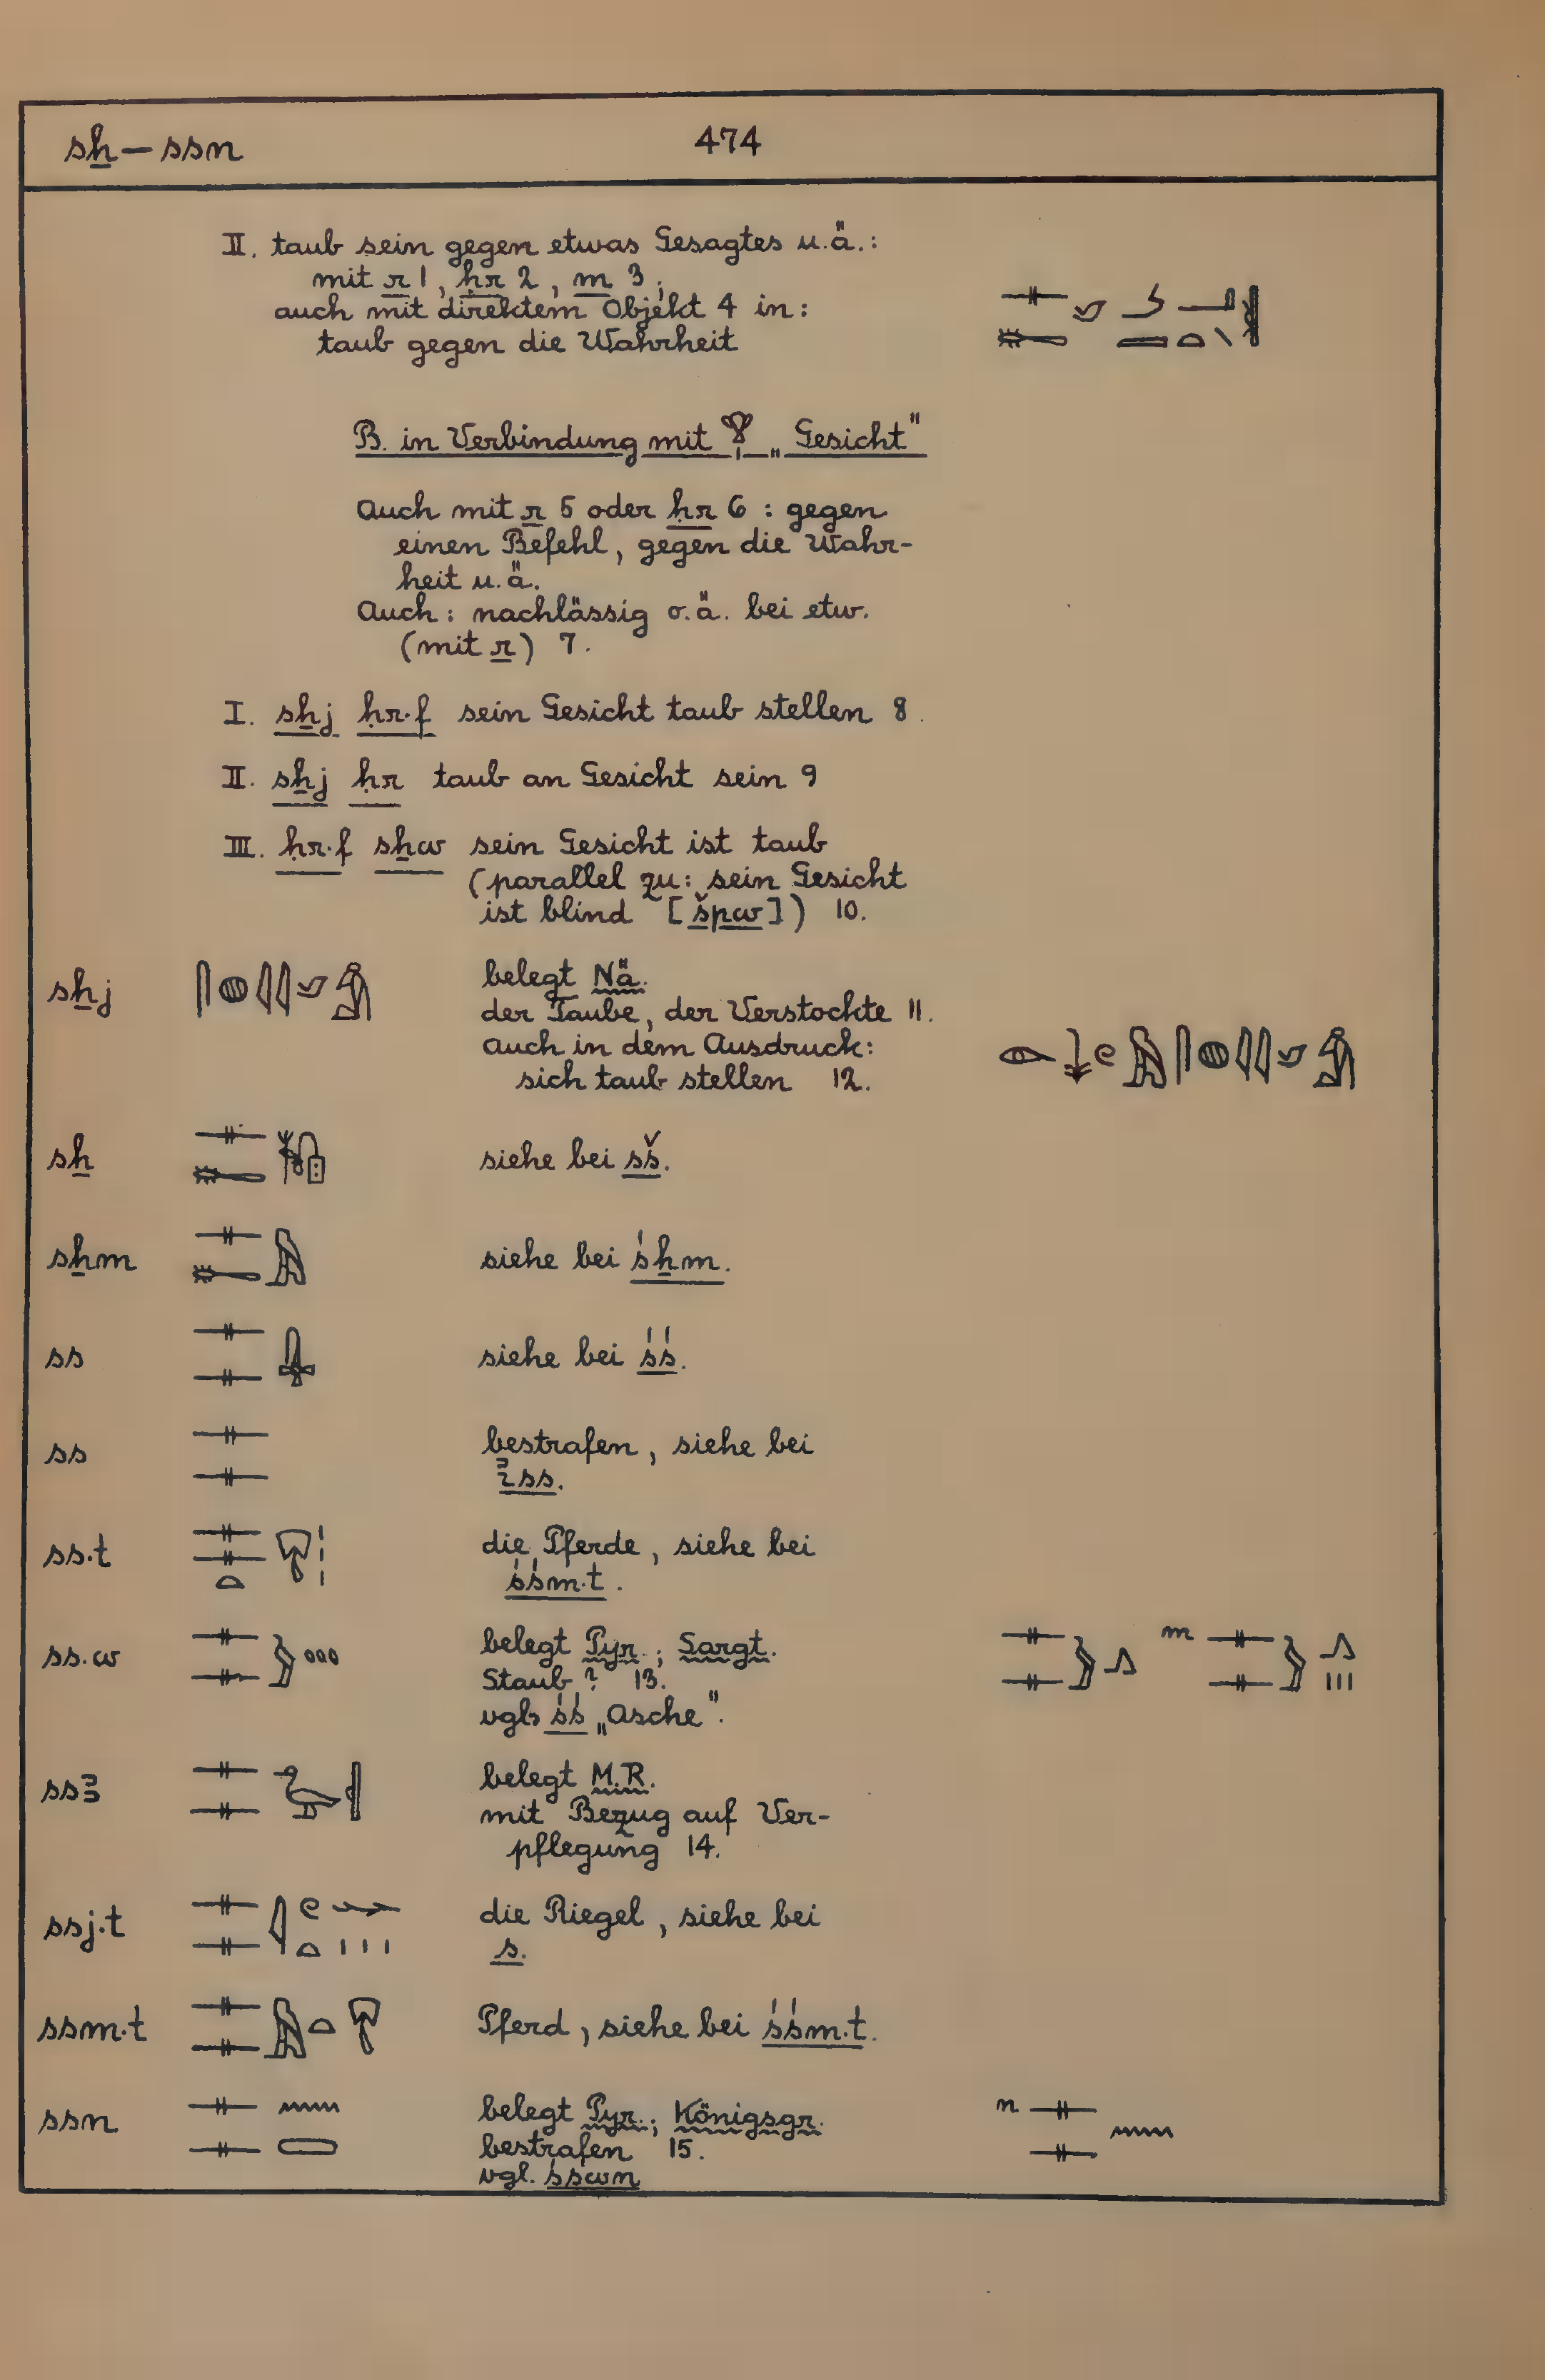 sẖ – ssn
474
II. taub sein gegen etwas Gesagtes u.ä.:
mit r 1, ḥr 2, m 3;
auch mit direktem Objekt 4 in:
taub gegen die Wahrheit
B. in Verbindung mit 𓁷𓏤 „Gesicht"
Auch mit r 5 oder ḥr 6 : gegen
einen Befehl, gegen die Wahr-
heit u.ä.
Auch: nachlässig o.ä. bei etw.
(mit r) 7.
I. sẖj ḥr·f sein Gesicht taub stellen 8.
II. sẖj ḥr taub an Gesicht sein 9
III. ḥr·f sẖw sein Gesicht ist taub
(parallel zu: sein Gesicht
ist blind [špw]) 10.
sẖj 𓋴𓐍𓇋𓇋𓄏𓀁 belegt Nä.
der Taube, der Verstockte 11.
auch in dem Ausdruck:
sich taub stellen 12.
sẖ 𓊃𓄡𓏞 siehe bei sš.
sẖm 𓊃𓄡𓅓 siehe bei śẖm.
ss 𓊃𓊃 siehe bei śś.
ss 𓊃𓊃 bestrafen, siehe bei
ꜣss.
ss.t 𓊃𓊃𓏏 die Pferde, siehe bei
śśm.t.
ss.w 𓊃𓊃𓅱 belegt Pyr.; Sargt.
Staub? 13.
vgl. śś „Asche".
ssꜣ 𓊃𓊃𓅭 belegt M.R.
mit Bezug auf Ver-
pflegung 14.
ssj.t 𓊃𓊃𓇋𓏲𓏏𓏥 die Riegel, siehe bei
s.
ssm.t 𓊃𓊃𓅓𓏏 Pferd, siehe bei śśm.t.
ssn 𓊃𓊃𓈖𓈙 belegt Pyr.; Königsgr. n 𓊃𓊃𓈖
bestrafen 15.
vgl. śswn